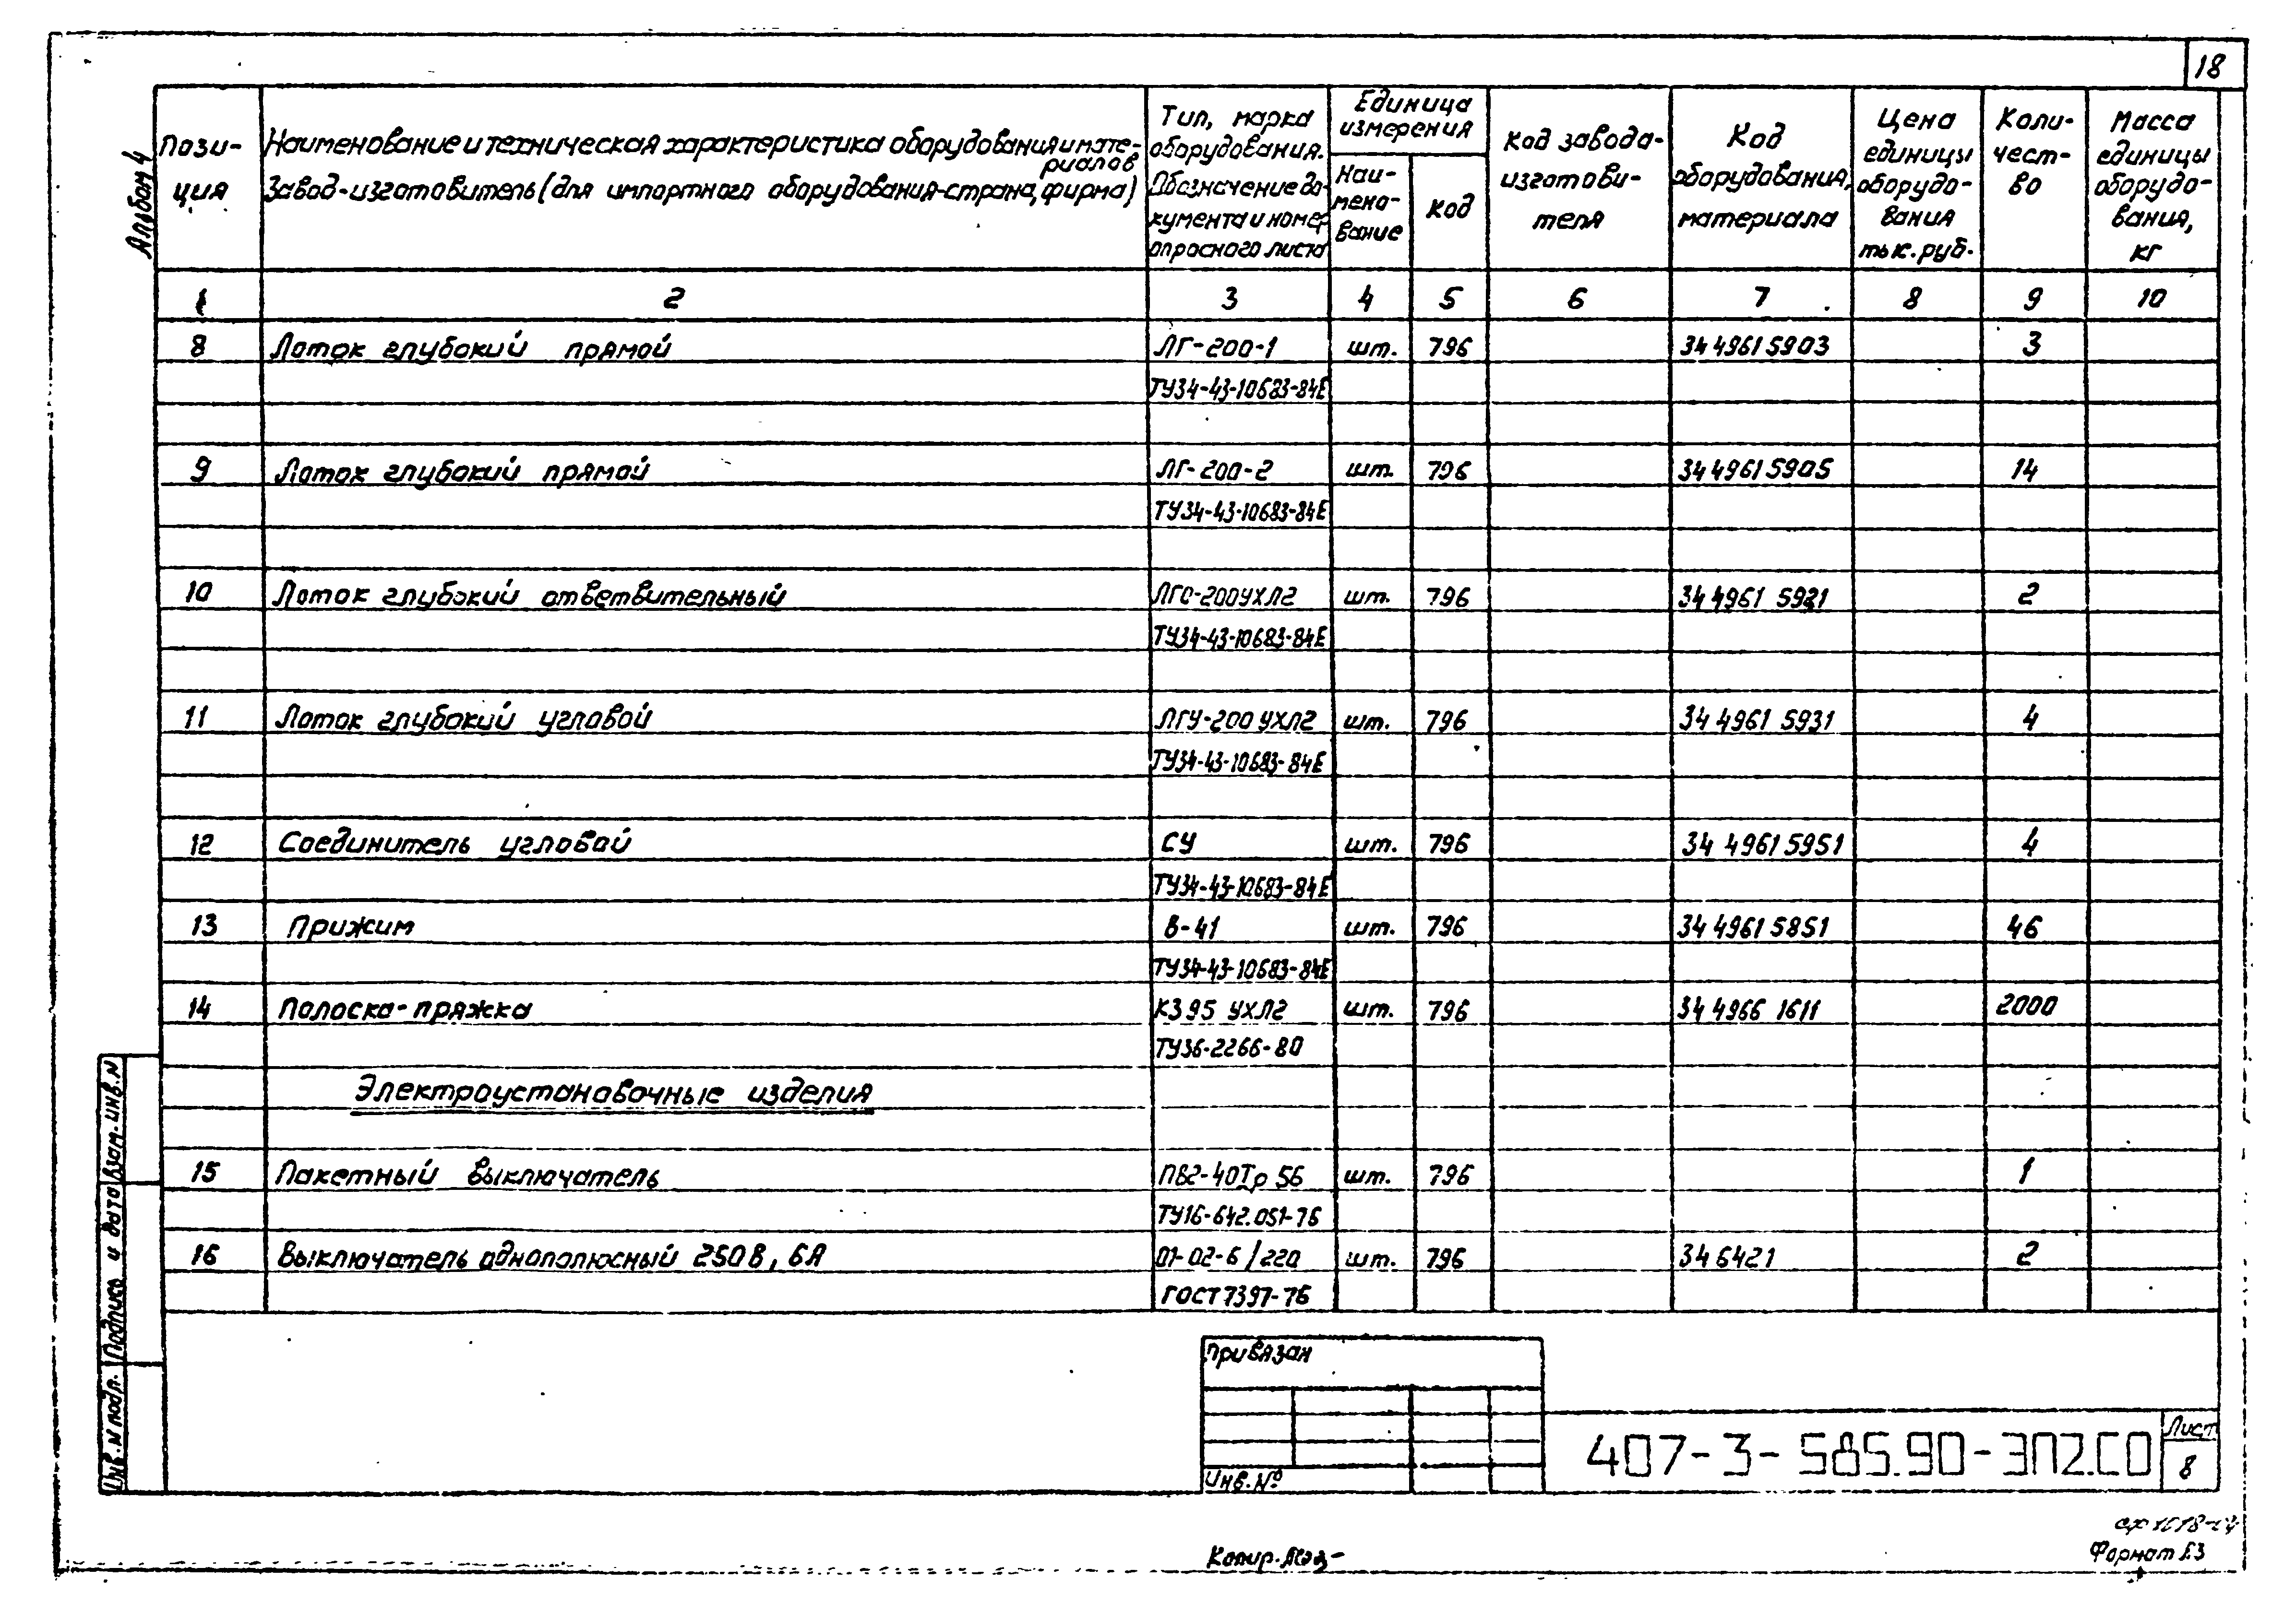 18
Альбом 4
Пози-
ция
Наименование и техническая характеристика оборудования и мате-
риалов
Завод-изготовитель (для импортного оборудования-страна, фирма)
Тип, марка
оборудования.
Обозначение до-
кумента и номер
опросного листа
Единица
измерения
Наи-
мено-
вание
Код
Код завода-
изготови-
теля
Код
оборудования,
материала
Цена
единицы
оборудо-
вания
тыс. руб.
Коли-
чест-
во
Масса
единицы
оборудо-
вания,
кг
1 2 3 4 5 6 7 8 9 10
8 Лоток глубокий прямой ЛГ-200-1 шт. 796 34 4961 5903 3
ТУ34-43-10683-84Е
9 Лоток глубокий прямой ЛГ-200-2 шт. 796 34 4961 5905 14
ТУ34-43-10683-84Е
10 Лоток глубокий ответвительный ЛГО-200УХЛ2 шт. 796 34 4961 5921 2
ТУ34-43-10683-84Е
11 Лоток глубокий угловой ЛГУ-200 УХЛ2 шт. 796 34 4961 5931 4
ТУ34-43-10683-84Е
12 Соединитель угловой СУ шт. 796 34 4961 5951 4
ТУ34-43-10683-84Е
13 Прижим В-41 шт. 796 34 4961 5851 46
ТУ34-43-10683-84Е
14 Полоска-пряжка К395 УХЛ2 шт. 796 34 4966 1611 2000
ТУ36-2266-80
Электроустановочные изделия
15 Пакетный выключатель ПВ2-40Тр 56 шт. 796 1
ТУ16-642.051-76
16 Выключатель однополюсный 250В, 6А 01-02-6/220 шт. 796 34 6421 2
ГОСТ 7397-76
Взам. инв. N
Подпись и дата
Инв. N подл.
Привязан
Инв. №
407-3-585.90-ЭП2.СО
Лист
8
Копир.
Формат А3